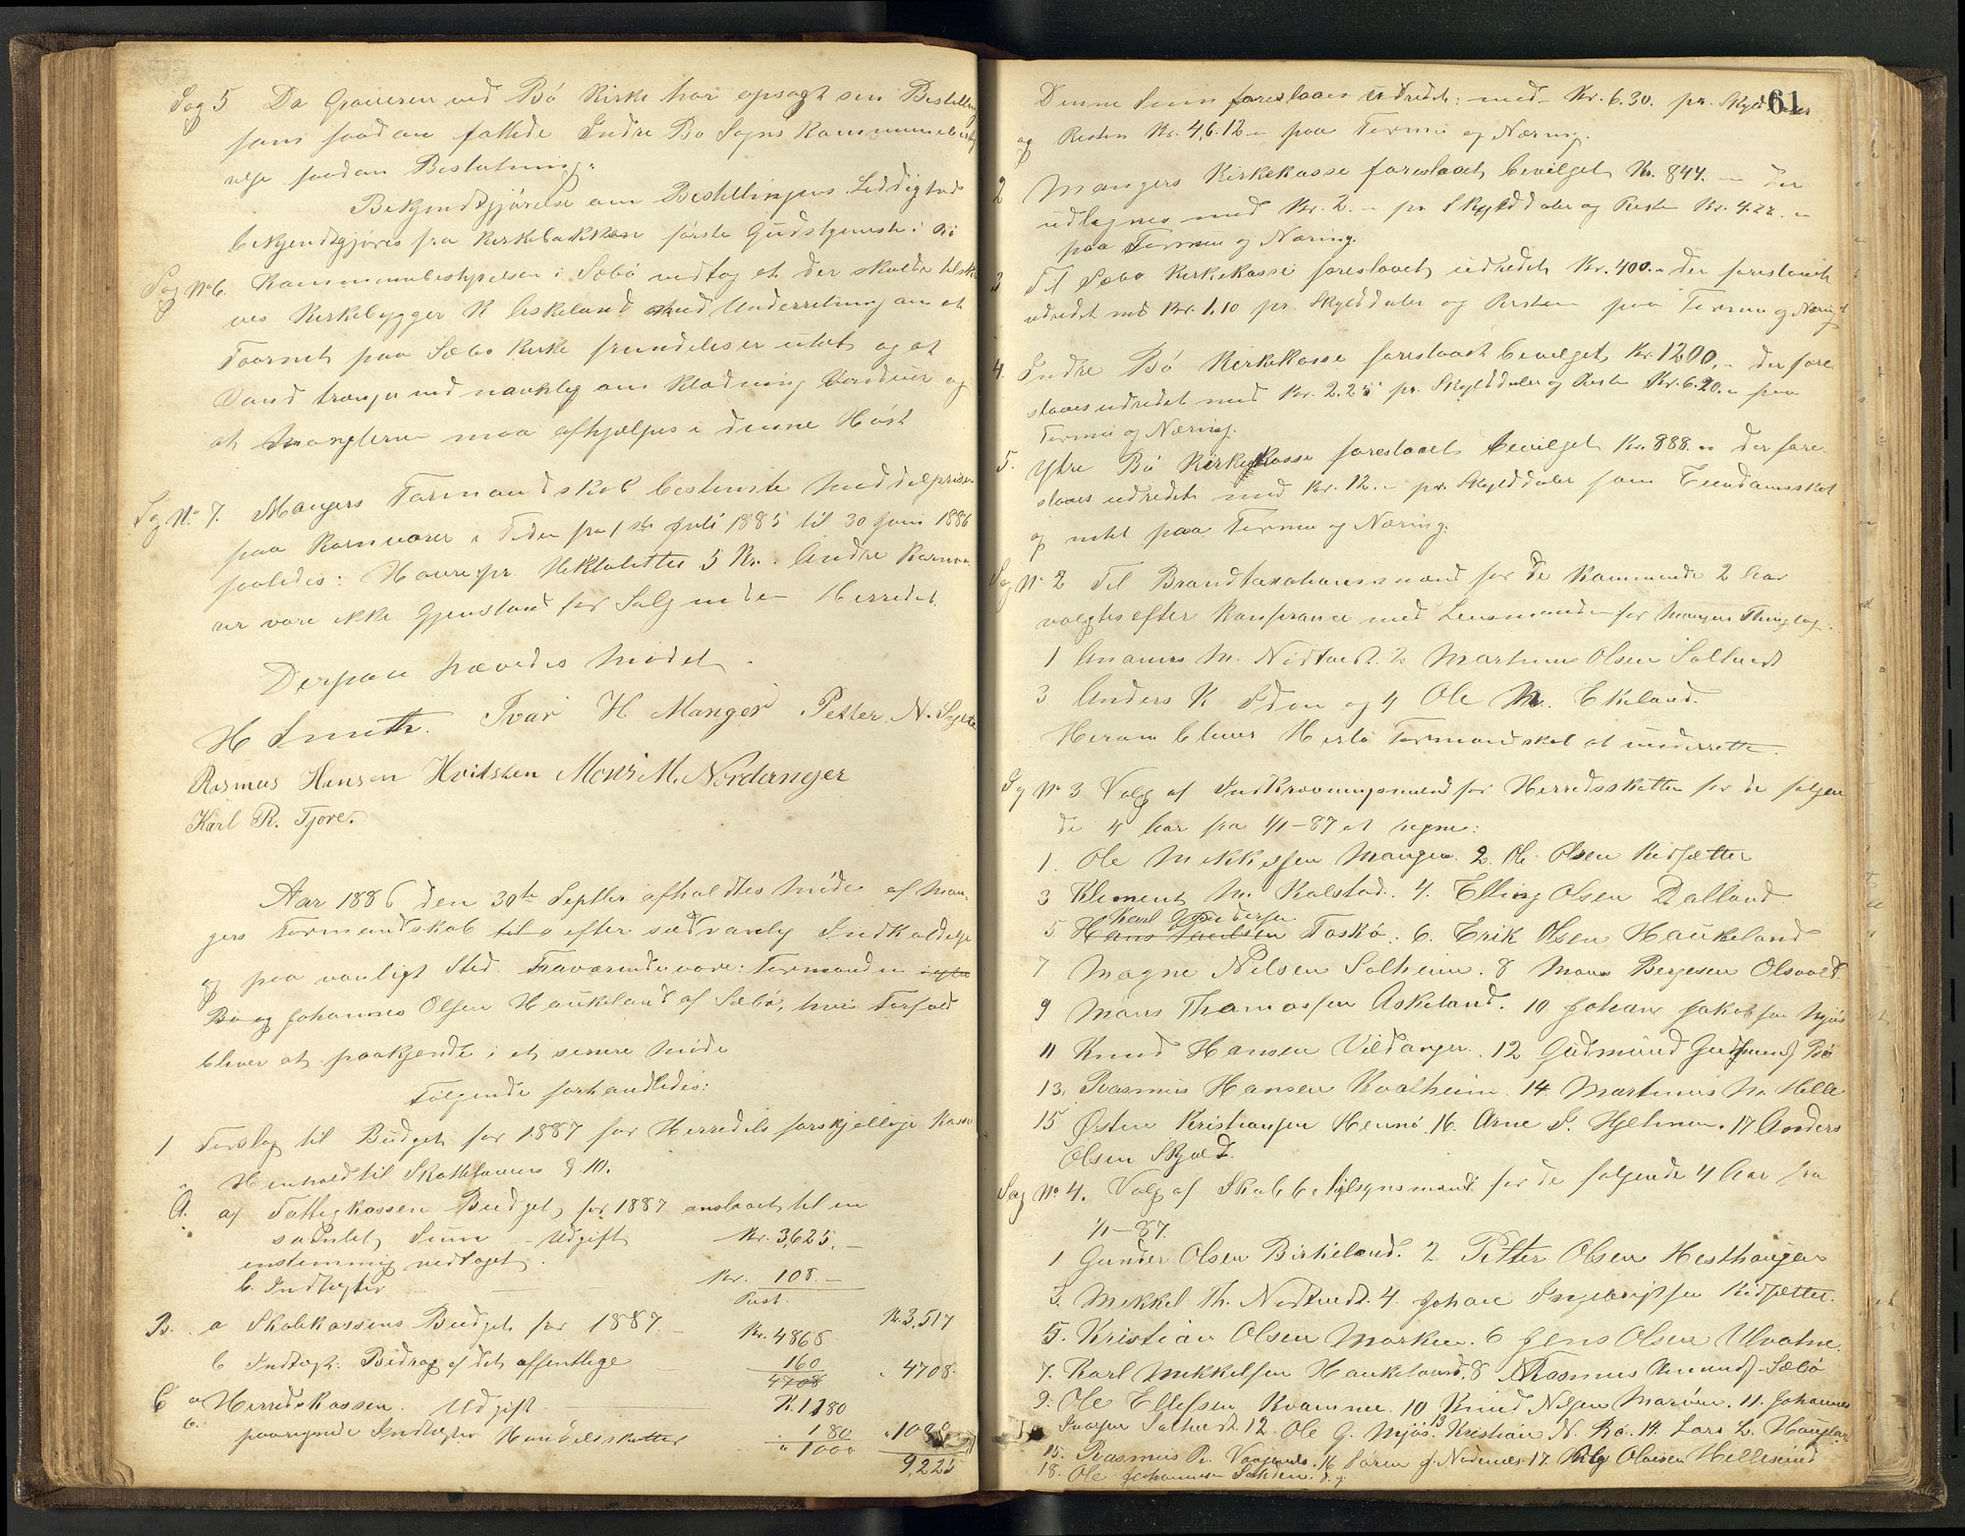 Sag 5 Da Graveren ved Bö Kirke har opsagt sin Bestilling
som saadan fattede Indre Bö Sogns Kommunebesty
relse saadan Beslutning:
Bekjendtgjörelse om Bestillingens Ledighed
bekjendtgjöres fra Kirkebakken förste Gudstjeneste i Bö
Sag No 6. Kommunebestyrelsen i Sæbö vedtog at der skulde tilskri
ves Kirkebygger R Askeland med Underretning om at
Taarnet paa Sæbö Kirke fremdeles er utæt og at
Vand trænger ind navnlig om Klædning Vinduer og
at Manglerne maa afhjælpes i denne Höst
Sag No 7. Mangers Formandskab bestemte Middelprisen
paa Kornvarer i Tiden fra 1ste Juli 1885 til 30 Juni 1886
saaledes: Havre pr. Hektoliter 5 Kr. Andre Kornva
rer vare ikke Gjenstand for Salg inden Herredet.
Derpaa hævedes Mödet.
H Smith. Ivar H Manger Petter N.
Rasmus Hansen Hvitsten Mons M. Nordanger
Karl R. Fjore.
Aar 1886 den 30te Septbr afholdtes Möde af Man
gers Formandskab efter sædvanlig Indkaldelse
og paa vanligt Sted. Fraværende vare: Formanden i ytre
Bö og Johannes Olsen Haukeland af Sæbö, hvis Forfald
bliver at paakjende i et senere Möde
Fölgende forhandledes:
1 Forslag til Budget for 1887 for Herredets forskjellige Kasser
i Henhold til Skatteloven § 10.
A. a) Fattigkassen Budget for 1887 anslaaet til en
samlet Sum Udgift Kr. 3,625,-
enstemmig vedtaget.
b. Indtægter Kr. 108.-
Rest. Kr. 3,517
B. a Skolekassens Budget for 1887 Kr. 4868
b Indtægt: Bidrag af det offentlige 160 " 4708.
4708
C a Herredskassen. Udgift K. 1180
b. paaregnede Indtægter Handelsskatter 180
" 1000
9,225
61
Denne Sum foreslaaes udredet: med Kr. 6.30. pr. Skylddaler
og Resten Kr. 4,612 " paa Formue og Næring.
2 Mangers Kirkekasse foreslaaet bevilget Kr. 844. - der
udlignes med Kr. 2. - pr Skylddaler og Resten Kr. 422. -
paa Formue og Næring.
3 Til Sæbö Kirkekasse foreslaaet udredet Kr. 400. - der foreslaaes
udredet med Kr. 1,10 pr. Skylddaler og Resten paa Formue og Næring
4. Indre Bö Kirkekasse foreslaaet bevilget Kr. 1200. - der fore
slaaes udredet med Kr. 2.25 pr. Skylddaler og Resten Kr. 620. - paa
Formue og Næring.
5. Ytre Bö Kirkekasse foreslaaet bevilget Kr. 888. " der fore
slaaes udredet med Kr. 12. - pr. Skylddaler som Eiendomsskat
og intet paa Formue og Næring.
Sag No 2 Til Brandtaxationsmænd for de kommende 2 Aar
valgtes efter Konferance med Lensmanden for Mangers Thinglag:
1 M. Nidtvedt. 2 Martinus Olsen Saltvedt
3 Anders K og 4 Ole M. Ekeland.
Herom bliver Herlö Formandskab at underrette.
Sag No 3 Valg af Indkrævningsmænd for Herredsskatten for de fölgen
de 4 Aar fra 1/1-87 at regne:
1. Ole Mikkelsen Manger. 2. Ole Olsen Kidsætter
3 Klement M. Kolstad. 4. Elling Olsen Dalland
Karl Gundersen
5. Hans Paulsen Toskö. 6. Erik Olsen Haukeland
7 Magne Nilsen Solheim. 8 Mons Berjesen Olsvold.
9 Mons Thomassen Askeland. 10 Johan Jakobsen Mjös
11 Knud Hansen Vildanger. 12 Gudmund Gudmunds Bö
13. Rasmus Hansen Kvalheim. 14. Martinus M. Helle
15 Östen Kristiansen Hennö. 16. Arne S. Hjelmen. 17 Anders
Olsen Skjold.
Sag No 4. Valg af Skoletilsynsmænd for de fölgende 4 Aar fra
1/1-87.
1 Gunder Olsen Birkeland. 2 Petter Olsen Hesthaugen
3. Mikkel Th. Nidtvedt. 4. Johan Ingebrigtsen Kidsætter.
5. Kristian Olsen Marken. 6 Jens Olsen Ulvatne.
7. Karl Mikkelsen Haukeland. 8 Rasmus Amunds. Sæbö
9. Ole Ellefsen Kvamme. 10 Knud Nilsen Maröen. 11. Johannes
Saltvedt. 12. Ole G. Mjös. 13 Kristian N. Bö. 14. Lars L. Haugland
15. Rasmus P. Vaagenes. 16 Sören J. Nordnæs. 17. Olaisen Hellesund
18. Ole Johannesen